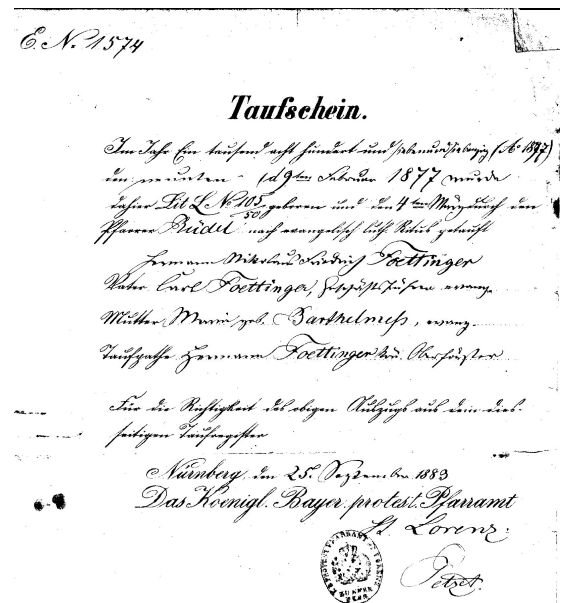 E. N. 1574
Taufschein.
Im Jahr Ein tausend acht hundert und siebenundsiebenzig (Ao 1877)
den neunten - (d 9ten Februar 1877 wurde
dahier Lit L No 105/50 geboren und den 4ten März durch den
Pfarrer nach evangelisch luth. Ritus getauft
Hermann Nikolaus Friedrich Foettinger
Vater Carl Foettinger, Geschäftsführer, evang.
Mutter, Maria geb. Barthelmeß, evang.
Taufpathe Hermann Foettinger Oberförster
Für die Richtigkeit des obigen Auszugs aus dem dies-
seitigen Taufregister
Nürnberg, den 25. September 1883
Das Koenigl. Bayer. protest. Pfarramt
St Lorenz.
Petzet.